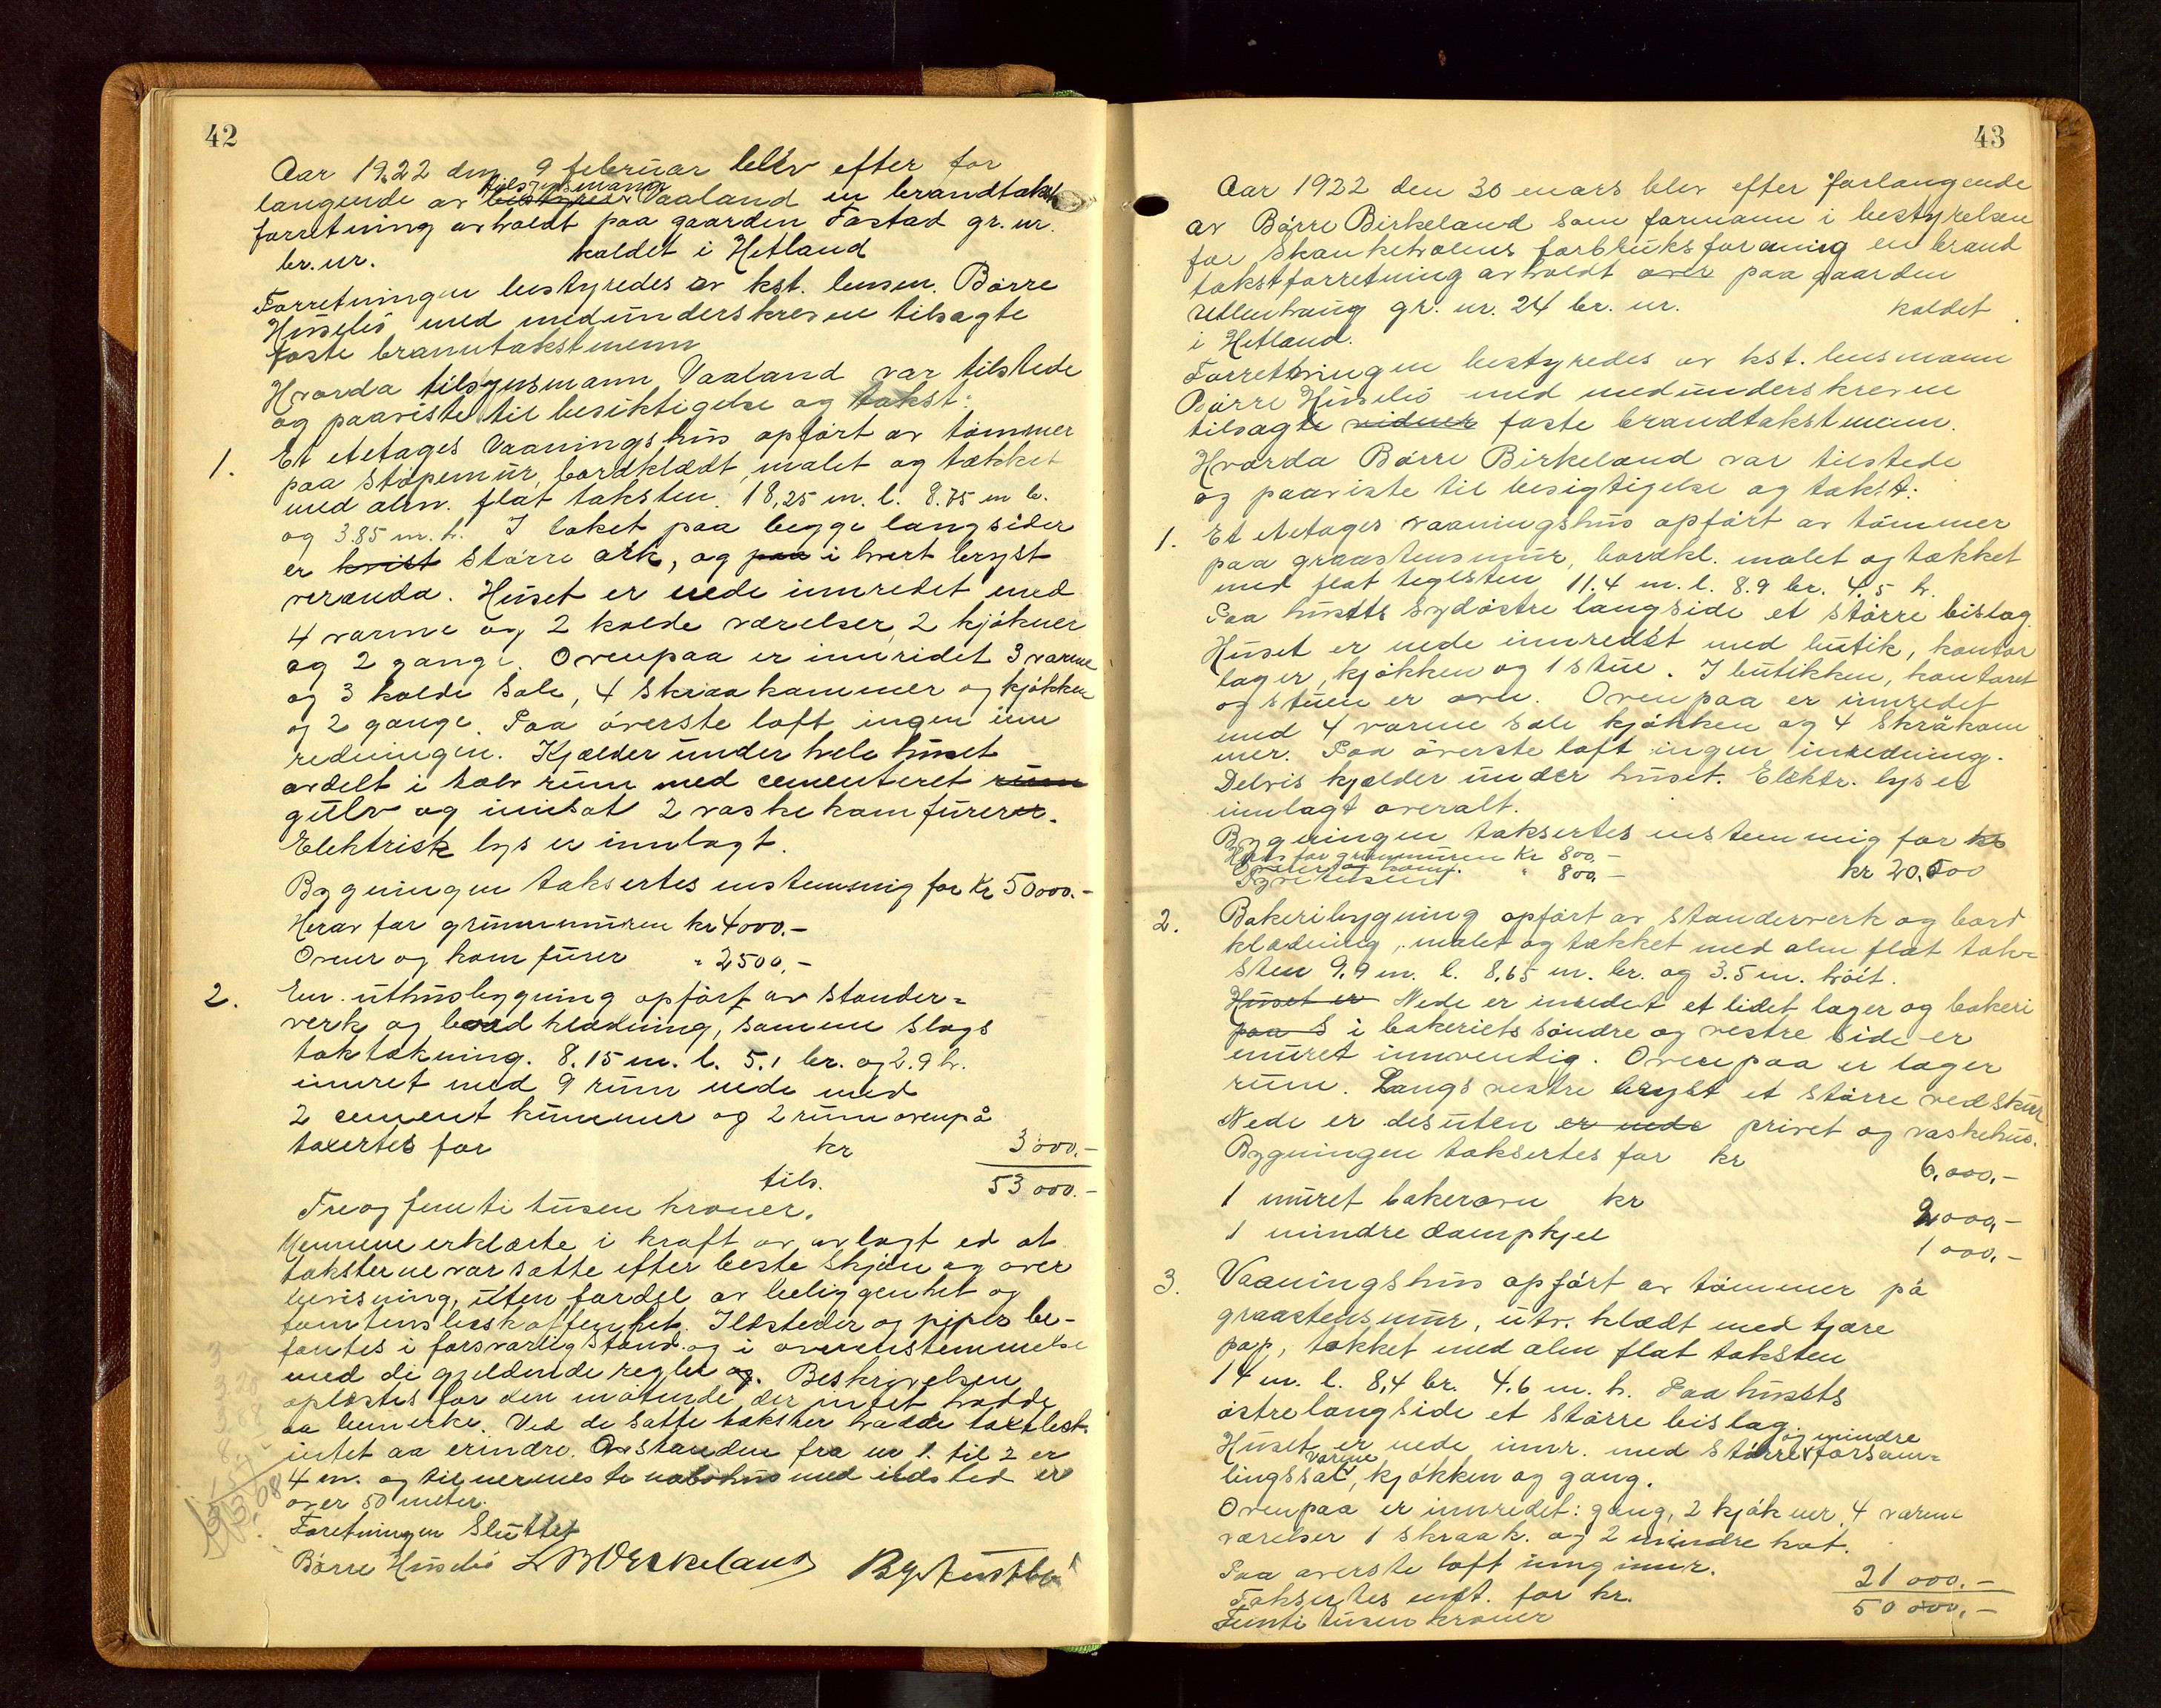 42
Aar 1922 den 9 februar blev efter for
langende av tilsynsmann Vaaland en brandtakst
forretning avholdt paa gaarden Tastad gr. nr.
br. nr. kaldet i Hetland
Forretningen bestyredes av kst. lensm. Børre
Husebø med medunderskrevne tilsagte
faste branntakstmenn
Hvorda tilsynsmann Vaaland var tilstede
og paaviste til besiktigelse og takst:
1. Et etetages Vaaningshus opført av tømmer
paa støpemur, bordklædt, malet og tækket
med alm. flat taksten. 18,25 m. l. 8.75 m b.
og 3.85 m. h. I taket paa begge langsider
er kvist større ark, og paa i hvert bryst
veranda. Huset er nede innredet med
4 varme og 2 kolde værelser, 2 kjøkner
og 2 gange. Ovenpaa er innridet 3 varme
og 3 kolde sale, 4 skraakammer og kjøkken
og 2 gange. Paa øverste loft ingen inn
redningen. Kjælder under hele huset
avdelt i tolv rum med cementeret rum
gulv og innsat 2 vaskekamfurerer.
Elektrisk lys er innlagt.
Bygningen taksertes enstemmig for Kr 50000.-
Herav for grunnmuren kr 4000.-
Ovner og komfurer " 2500,-
2. En uthusbygning opført av stander-
verk og bordklædning, samme slags
taktækning. 8.15 m. l. 5.1 br. og 2.9 h.
innret med 9 rum nede med
2 cement kummer og 2 rum ovenpå
taxertes for kr 3000.-
tils. 53000.-
Tre og femti tusen kroner.
Mennene erklærte i kraft av avlagt ed at
taksterne var satte efter beste skjøn og over
bevisning, uten fordel av beliggenhet og
tomtens beskaffenhet. Ildsteder og piper be-
fantes i forsvarlig stand og i overenstemmelse
med de gjeldende regler og. Beskrivelsen
oplæstes for den møtende der intet hadde
aa bemerke. Ved de satte takster hadde taxtbest.
intet aa erindre. Avstanden fra nr 1. til 2 er
4 m. og til nærmeste nabohus med ildsted er
over 50 meter.
Foretningen Sluttet
Børre Husebø
43
Aar 1922 den 30 mars blev efter forlangende
av Børre Birkeland som formann i bestyrelsen
for Skankeholens forbruksforening en brand
takstforretning avholdt over paa gaarden
Ullenhaug gr. nr. 24 br. nr. kaldet
i Hetland.
Forretningen bestyredes av kst. lensmann
Børre Husebø med medunderskreven
tilsagte vidner faste brandtakstmenn.
Hvorda Børre Birkeland var tilstede
og paaviste til besigtigelse og takst:
1. Et etetages vaaningshus opført av tømmer
paa graastensmur, bordkl. malet og tækket
med flat teglsten 11.4 m. l. 8.9 br. 4.5 h.
Paa husets sydøstre langside et større bislag
Huset er nede innredet med butik, kontor
lager, kjøkken og 1 stue. I butikken, kontoret
og stuen er ovn. Ovenpaa er innredet
med 4 varme sale kjøkken og 4 skråkam
mer. Paa øverste loft ingen inredning.
Delvis kjælder under huset. Elektr. lys er
innlagt overalt.
Bygningen taksertes enstemmig for kr
Herav for grunnmuren Kr 800.-
Ovner og komf. " 800.- kr 20.500
Tyvetusend
2. Bakeribygning opført av standerverk og bord
klædning, malet og tækket med alm flat tak-
sten 9.9 m. l. 8,65 m. br. og 3.5 m. höit.
Huset er Nede er inredet et lidet lager og bakeri
paa S i bakeriets søndre og vestre side er
muret innvendig. Ovenpaa er lager
rum. Langs vestre bryst et større vedskur
Nede er desuten er nede privet og vaskehus.
Bygningen taksertes for kr 6,000,-
1 muret bakerovn kr 2000,-
1 mindre dampkjel 1000,-
3. Vaaningshus opført av tømmer på
graastensmur, utv. klædt med tjære
pap, tækket med alm flat taksten
14 m. l. 8,4 br. 4.6 m. h. Paa husets
østre langside et større bislag.
Huset er nede innr. med større og mindre forsam-
lingssal, varme kjøkken og gang.
Ovenpaa er innredet: gang, 2 kjøkner, 4 varme
værelser 1 skraak. og 2 mindre kot.
Paa øverste loft ing innr.
Taksertes enst. for kr. 21000.-
50000,-
Femti tusen kroner